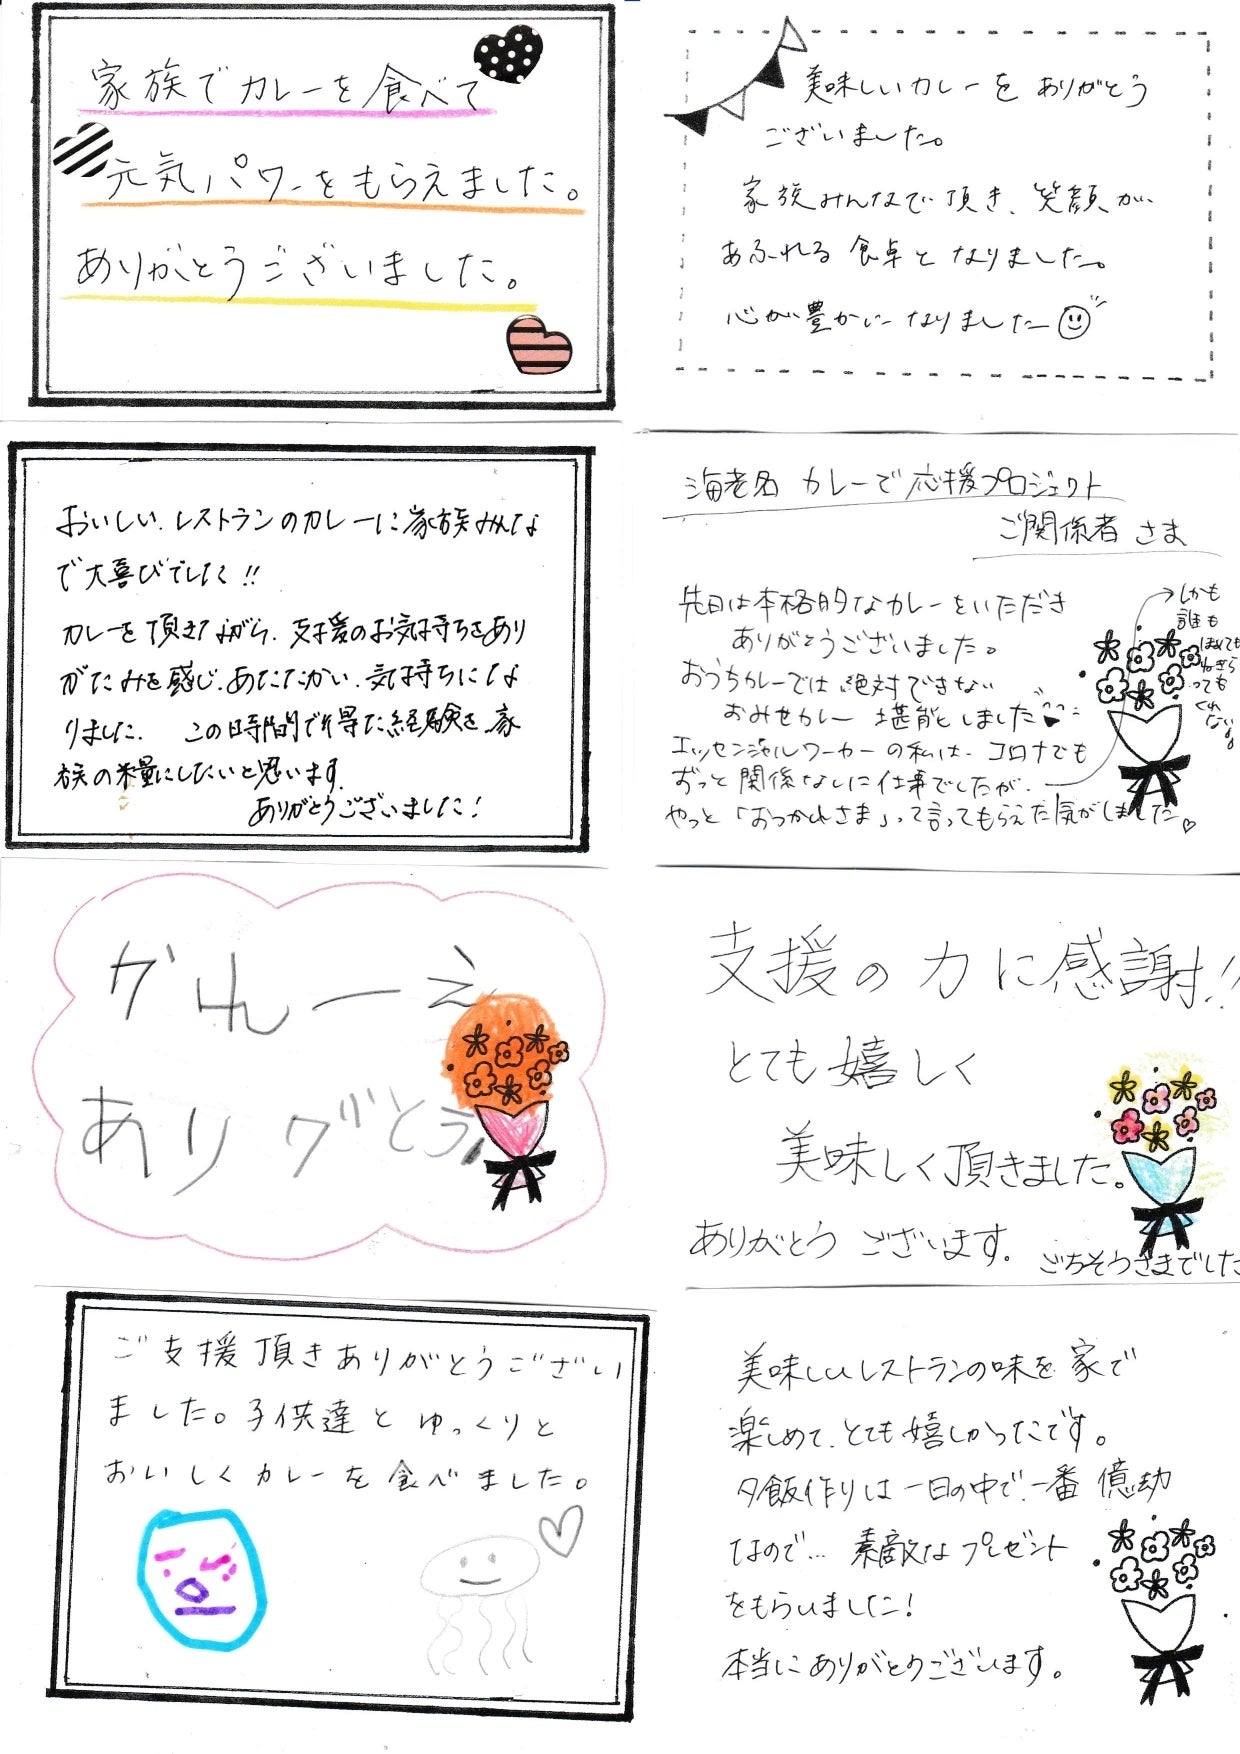 家族でカレーを食べて
元気パワーをもらえました。
ありがとうございました。
美味しいカレーをありがとう
ございました。
家族みんなで頂き、笑顔が
あふれる食卓となりました。
心が豊かになりました
おいしい、レストランのカレーに家族みんな
で大喜びでした!!
カレーを頂きながら、支援のお気持ちをあり
がたみを感じ、あたたかい、気持ちにな
りました。この時間で得た経験を、家
族の糧にしたいと思います。
ありがとうございました!
海老名 カレーで応援プロジェクト
ご関係者さま
先日は本格的なカレーをいただき
ありがとうございました。
おうちカレーでは絶対できない
おみせカレー 堪能しました
エッセンシャルワーカーの私は、コロナでも
ずっと関係なしに仕事でしたが、
やっと「おつかれさま」って言ってもらえた気がしました♡
しかも
誰も
ほめても
ねぎら
っても
くれない
かれーえ
ありがとう
支援の力に感謝!!
とても嬉しく
美味しく頂きました。
ありがとうございます。
ごちそうさまでした
ご支援頂きありがとうござい
ました。子供達とゆっくりと
おいしくカレーを食べました。
美味しいレストランの味を家で
楽しめて、とても嬉しかったです。
夕飯作りは一日の中で、一番億劫
なので… 素敵なプレゼント
をもらいました!
本当にありがとうございます。